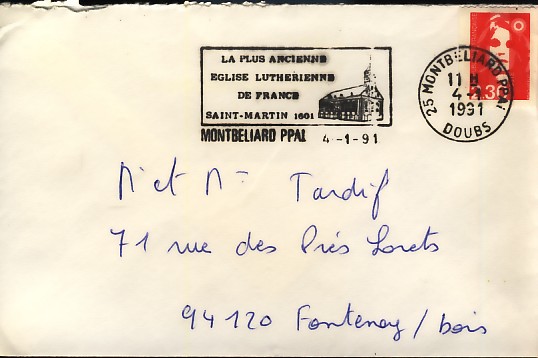 LA PLUS ANCIENNE
EGLISE LUTHERIENNE
DE FRANCE
SAINT-MARTIN 1601
MONTBELIARD PPAL 4-1-91
25 MONTBELIARD PPAL
11 H
4-1
1991
DOUBS
2.30
M et Me Tardif
71 rue des Prés Lorets
94120 Fontenay / bois